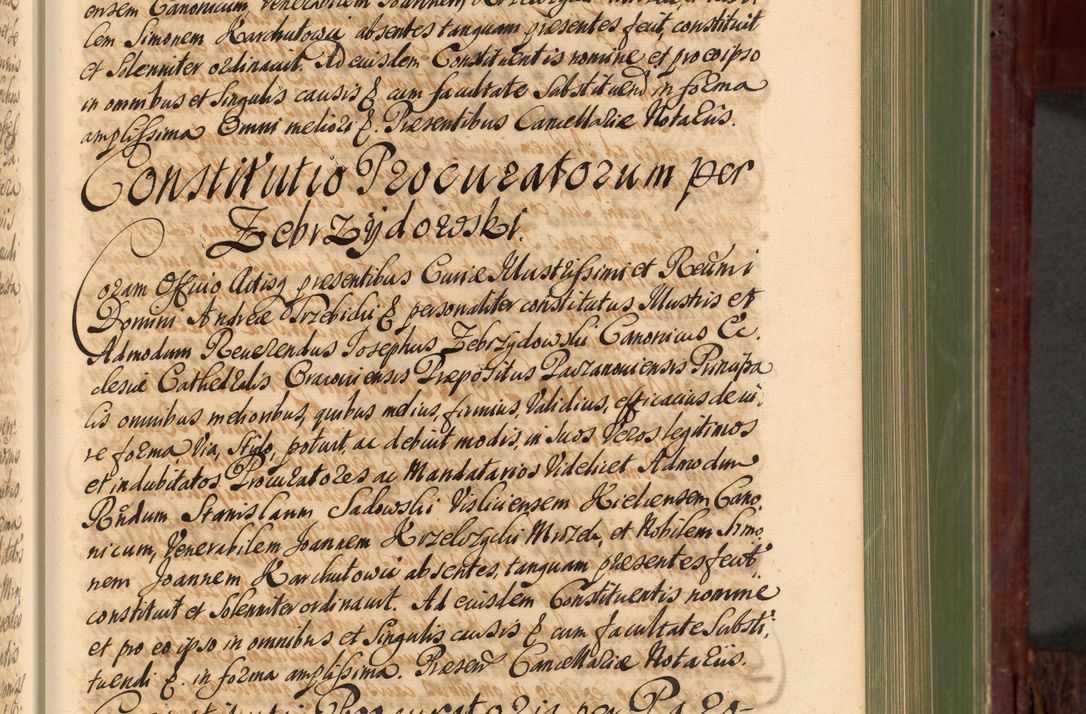 ensem Canonicum Venerabilem Joannem
lem Simonem Karchutowic absentes tanquam presentes fecit, constituit
et Solenniter ordinavit. Ad eiusdem Constituentis nomine et pro eo ipso
in omnibus et Singulis causis & cum facultate Substituendi in forma
amplissima Omni meliori &. Præsentibus Cancellariæ Notariis.
Constitutio Procuratorum per
Zebrzÿdowski.
Coram Officio Actisq presentibus Curiæ Illustrissimi et Reuml
Domini Andreæ Trzebicki & personaliter constitutus Illustris et
Admodum Reverendus Josephus Zebrzydowski Canonicus Ec
clesiæ Cathedralis Cracoviensis Præpositus Paczanoviensis Principa
lis omnibus melioribus, quibus melius, firmius, Validius, efficacius de iu
re forma Via, Stylo, potuit, ac debuit modis, in Suos Veros legitimos
et indubitatos Procuratores ac Mandatarios Videlicet Admodum
Rndum Stanislaum Sadowski Visliciensem Kielcensem, Cano,
nicum, Venerabilem Joannem Krzelczycki Mrozek, et Nobilem Simo,
nem Joannem Karchutowic absentes, tanquam præsentes fecit,
constituit et Solenniter ordinavit. Ad eiusdem Constituentis nomine
et pro eo ipso in omnibus et Singulis causis & cum facultate Substi,
tuendi &. in forma amplissima. Præsen Cancellariæ Notariis.
Procuratoris per